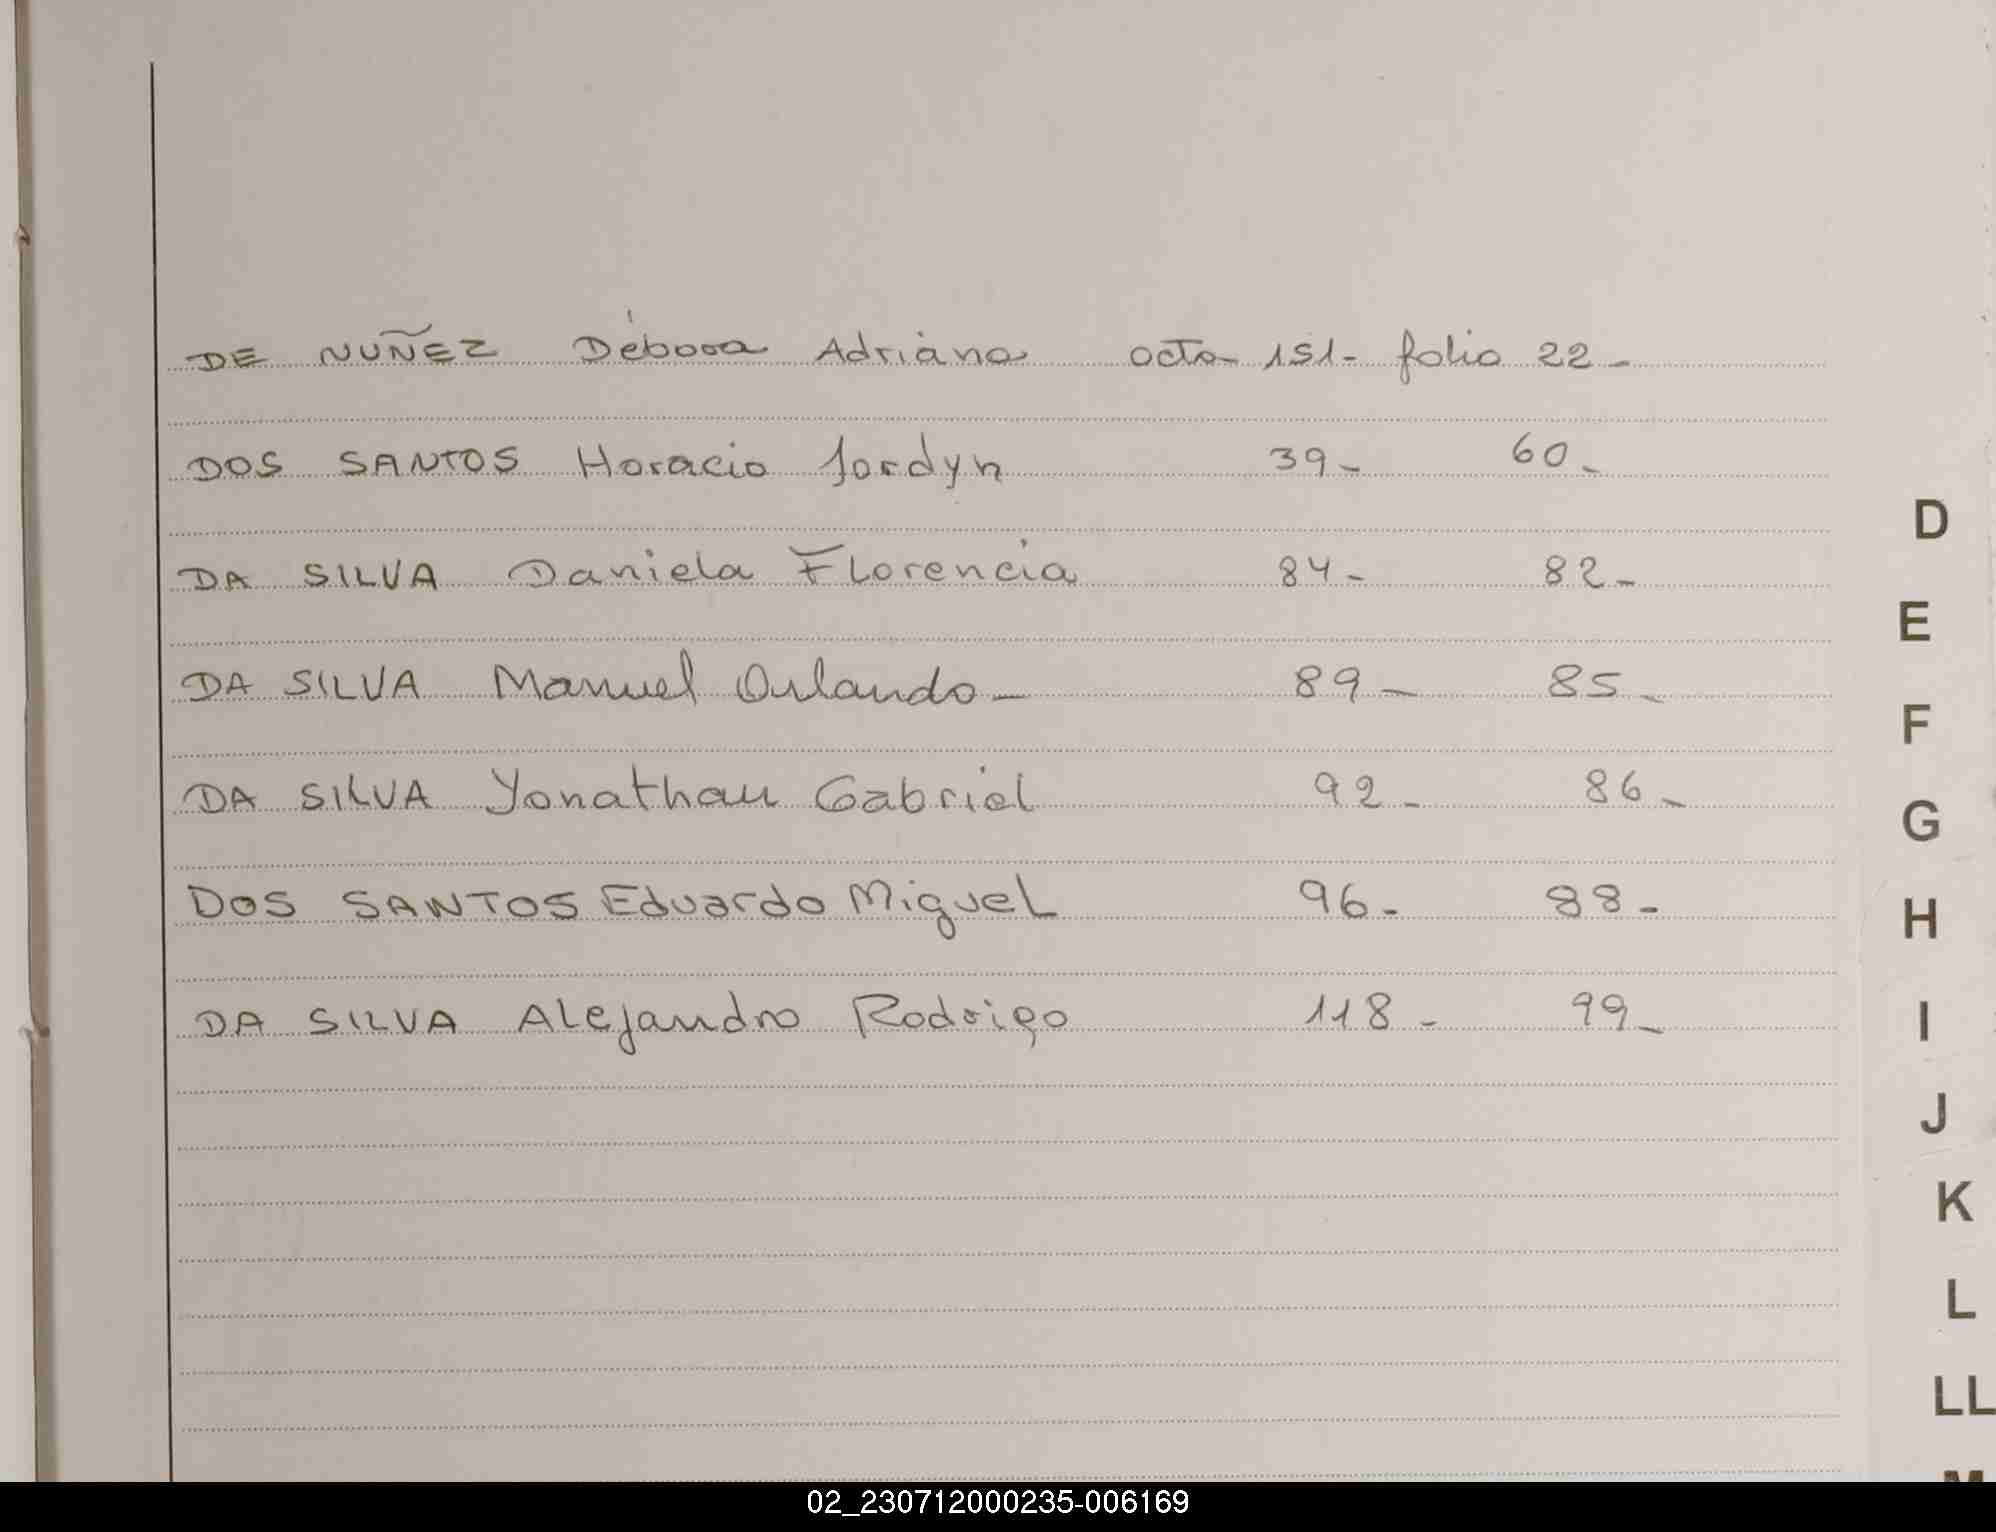 DE NUÑEZ Débora Adriana acta 151- folio 22-
DOS SANTOS Horacio Jordyn 39- 60-
DA SILVA Daniela Florencia 84- 82-
DA SILVA Manuel Orlando- 89- 85-
DA SILVA Yonathan Gabriel 92- 86-
DOS SANTOS Eduardo Miguel 96- 88-
DA SILVA Alejandro Rodrigo 118- 99-
D
E
F
G
H
I
J
K
L
LL
M
02_230712000235-006169